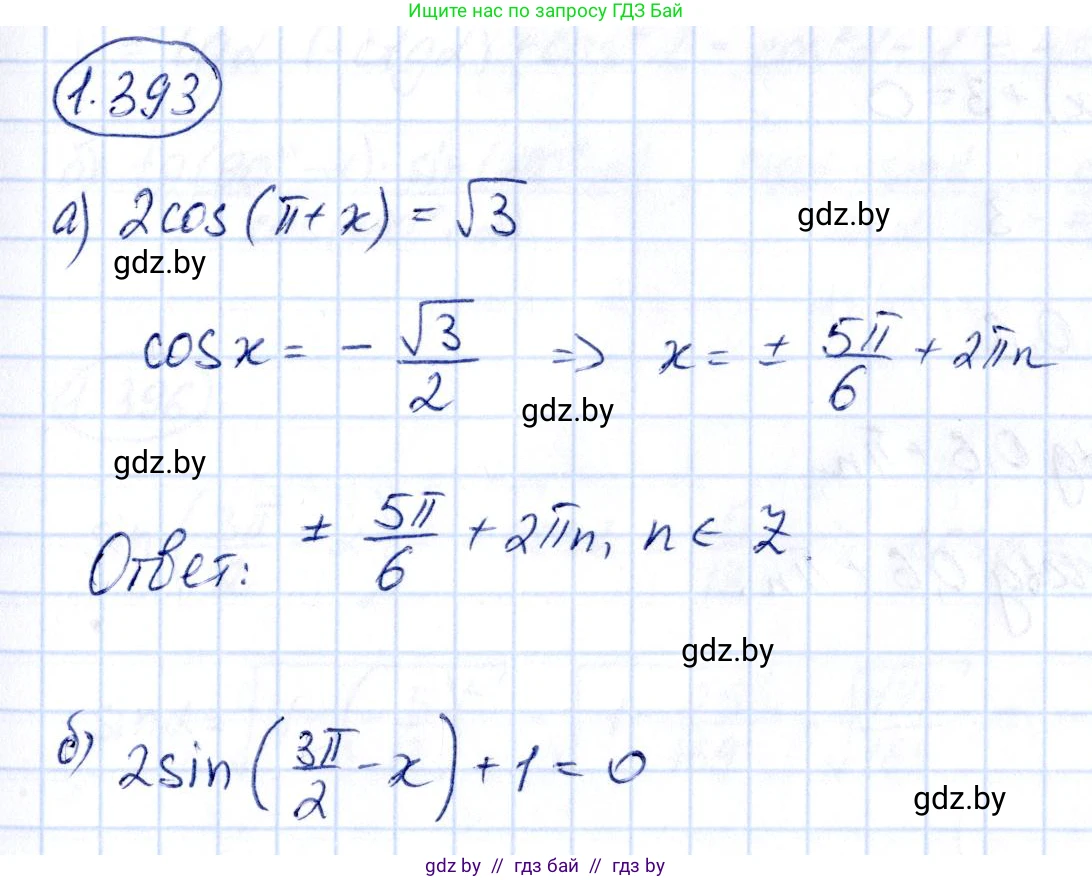 Ищите нас по запросу ГДЗ Бай
1.393
а) 2cos(π+x) = √3
gdz.by
gdz.by
cosx = - √3/2 => x = ± 5π/6 + 2πn
gdz.by
gdz.by
Ответ: ± 5π/6 + 2πn, n ∈ Z.
gdz.by
б) 2sin(3π/2 - x) + 1 = 0
gdz.by
gdz by // гдз бай // гдз by